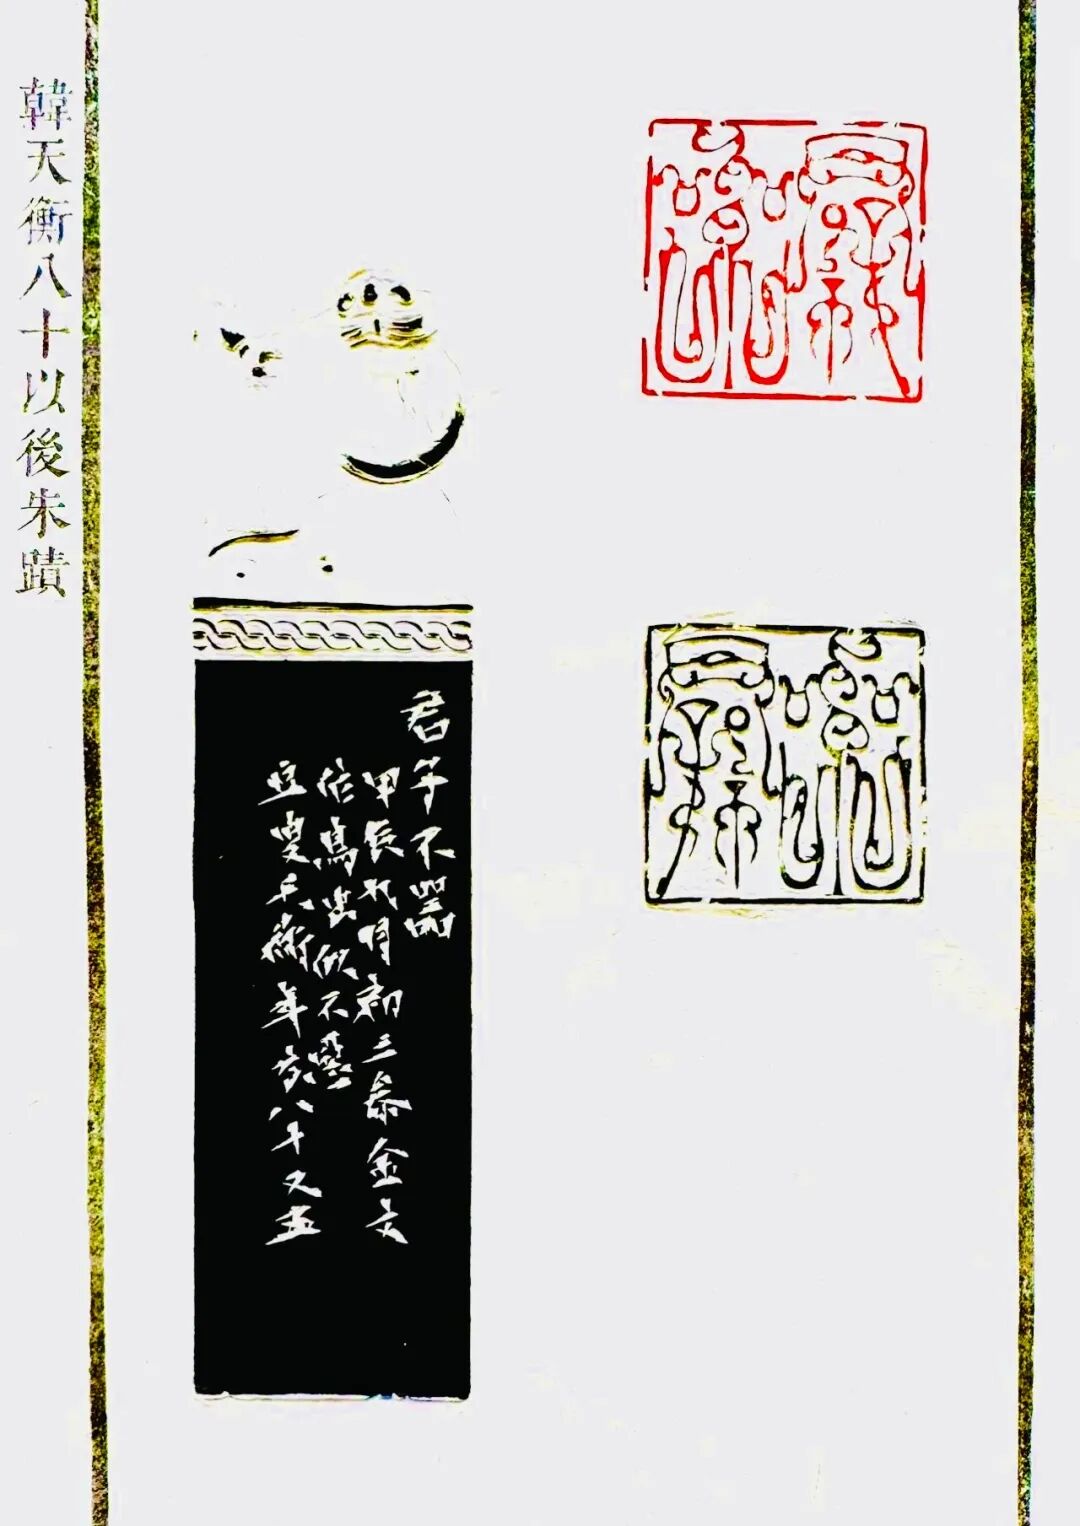 韓天衡八十以後朱蹟
君子不器
甲辰九月初三參金文
作鳥虫似不惡
豆叟天衡年方八十又五